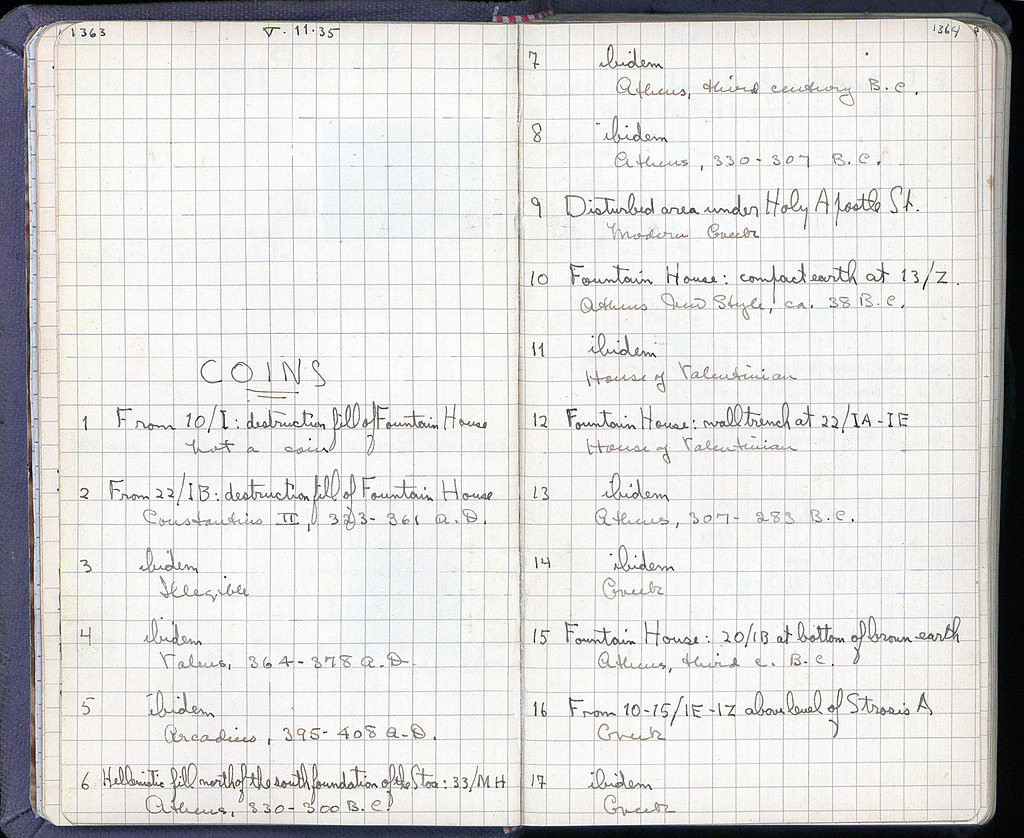 1363
V·11·35
COINS
1 From 10/I: destruction fill of Fountain House
Not a coin
2 From 22/IB: destruction fill of Fountain House
Constantius II, 323-361 A.D.
3 ibidem
Illegible
4 ibidem
Valens, 364-378 A.D.
5 ibidem
Arcadius, 395-408 A.D.
6 Hellenistic fill north of the south foundation of the Stoa: 33/MH
Athens, 330-300 B.C.
1364
7 ibidem
Athens, third century B.C.
8 ibidem
Athens, 330-307 B.C.
9 Disturbed area under Holy Apostle St.
Modern Greek
10 Fountain House: compact earth at 13/Z.
Athens New Style, ca. 38 B.C.
11 ibidem
House of Valentinian
12 Fountain House: wall trench at 22/IA-IE
House of Valentinian
13 ibidem
Athens, 307-283 B.C.
14 ibidem
Greek
15 Fountain House: 20/IB at bottom of brown earth
Athens, third c. B.C.
16 From 10-15/IE-IZ above level of Strosis A
Greek
17 ibidem
Greek